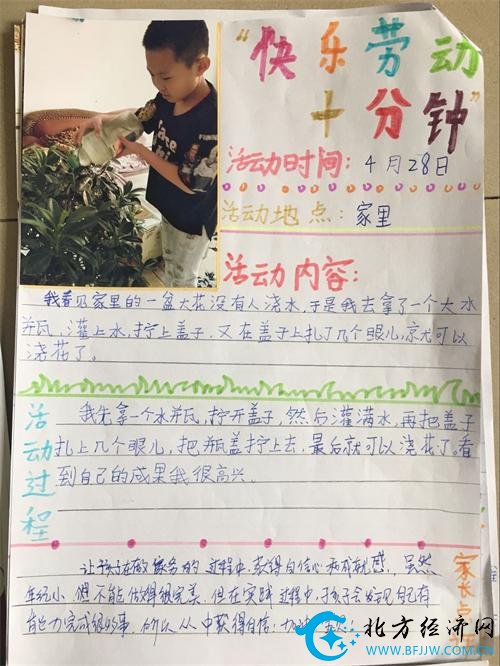 “快乐劳动
十分钟”
活动时间: 4月28日
活动地点: 家里
活动内容:
我看见家里的一盆大花没有人浇水,于是我去拿了一个大水
瓶,灌上水,拧上盖子,又在盖子上扎了几个眼儿,就可以
浇花了。
活动过程
我先拿一个水瓶,拧开盖子,然后灌满水,再把盖子
扎上几个眼儿,把瓶盖拧上去,最后就可以浇花了。看
到自己的成果我很高兴。
家长点
让孩子在做家务的过程中获得自信心和成就感,虽然
年纪小,但不能做得很完美,但在实践过程中,孩子会发现自己有
能力完成很多事,所以从中获得自信,
北方经济网
WWW.BFJJW.COM.CN